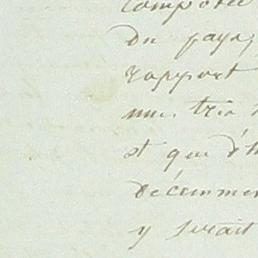 composée
du pays,
rapport
une très
et que d'h
décemmen
y serait